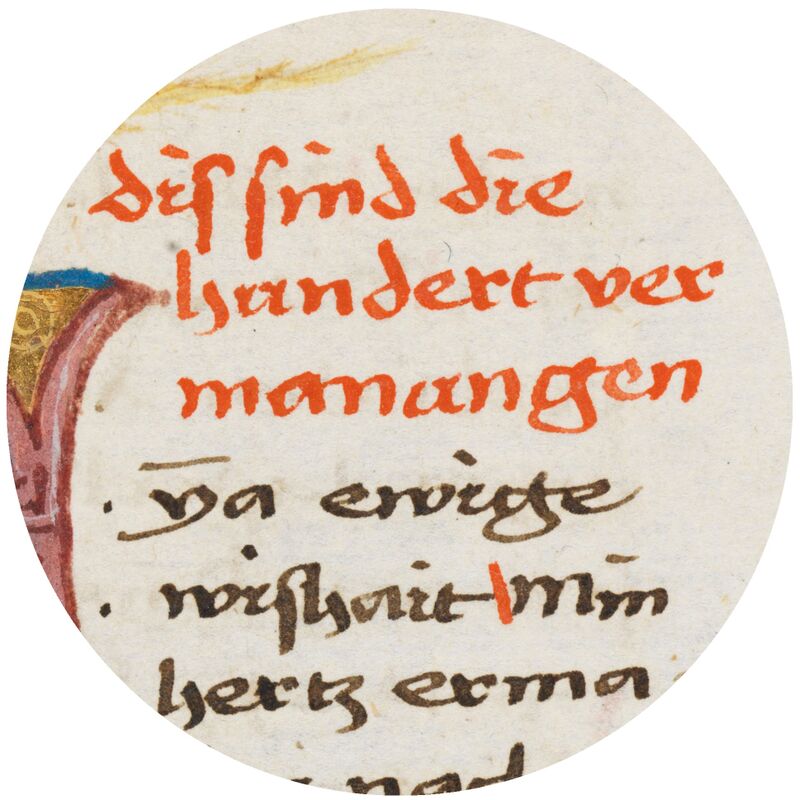 dis sind die
hundert ver
manungen
ya ewige
wishait Min
hertz erma